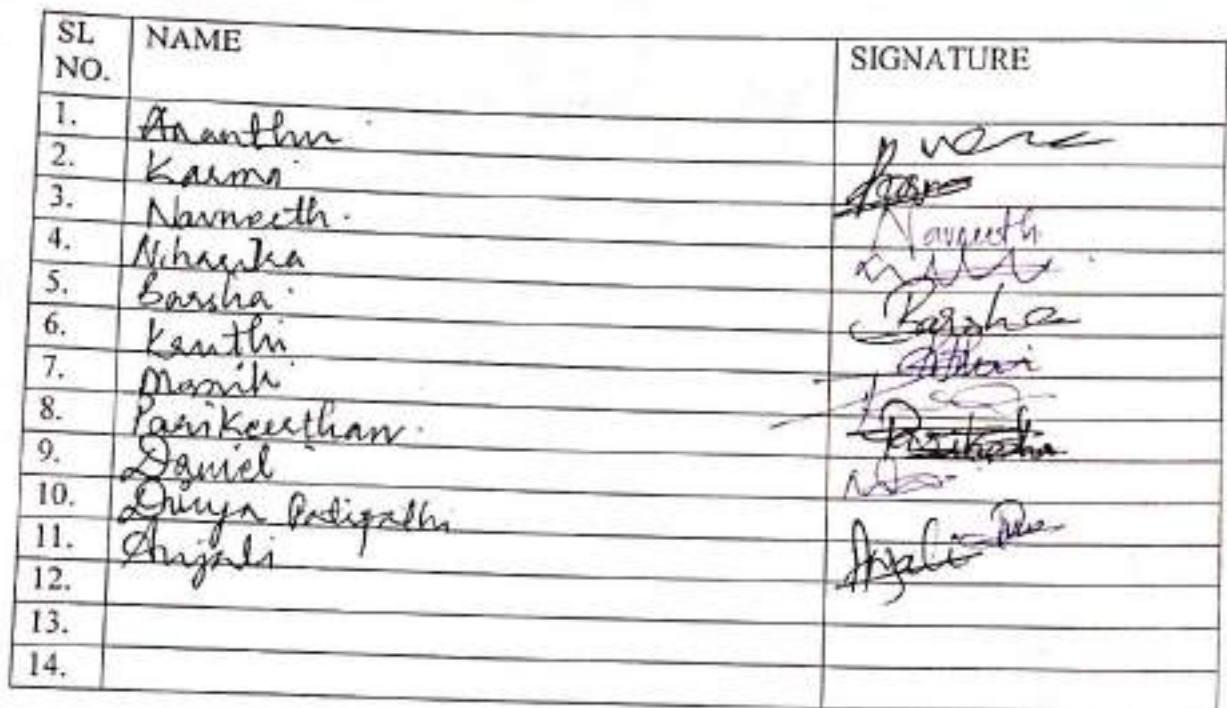 SL NO. NAME SIGNATURE
1. Ananthu
2. Karma Karma
3. Navneeth. Navneeth
4. Niharika
5. Barsha Barsha
6. Keuthi
7. Manik
8. Parikeerthan.
9. Daniel
10. Divya
11. Anjali Anjali
12.
13.
14.